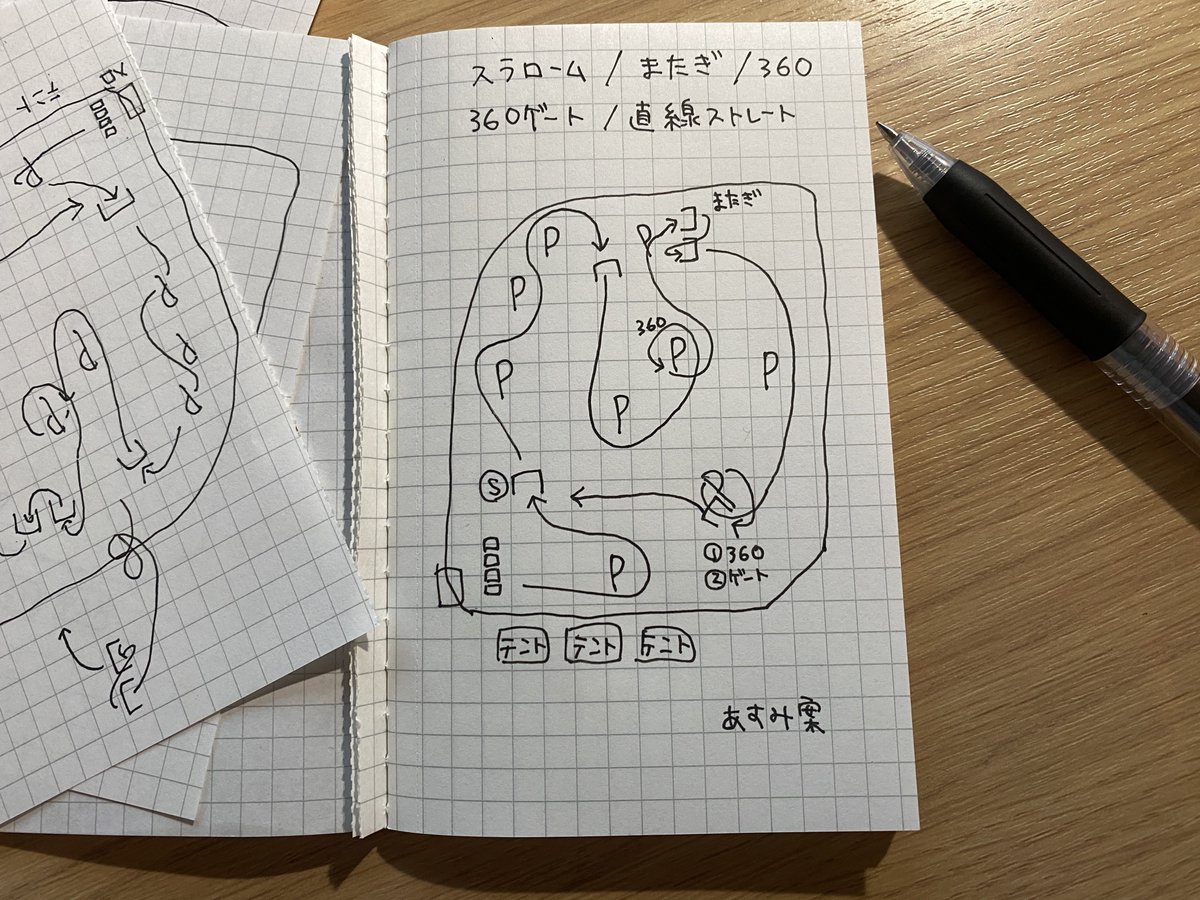 スラローム / またぎ / 360
360ゲート / 直線ストレート
またぎ
P
P
P
P
360
P
P
P
P
S
P
① 360
② ゲート
テント テント テント
あすみ案
テント
P
P
P
P
P
P